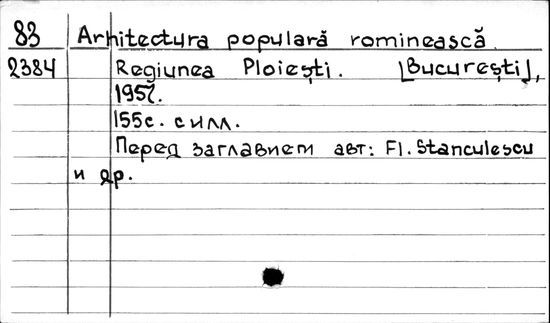 83 Arhitectura populară romînească.
2384 Regiunea Ploiești. [București],
1957.
155с. с илл.
Перед заглавием авт: Fl. Stanculescu
и др.